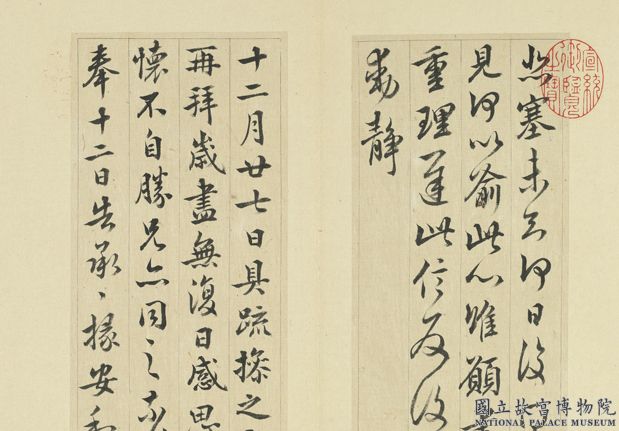 宣統御覽之寶
悲塞未知何日復
見何以喻此心唯願
重理遲此信反復
動靜
十二月廿七日具疏操之
再拜歲盡無復日感思
懷不自勝兄亦同之
奉十二日告承、掾安
國立故宮博物院
NATIONAL PALACE MUSEUM